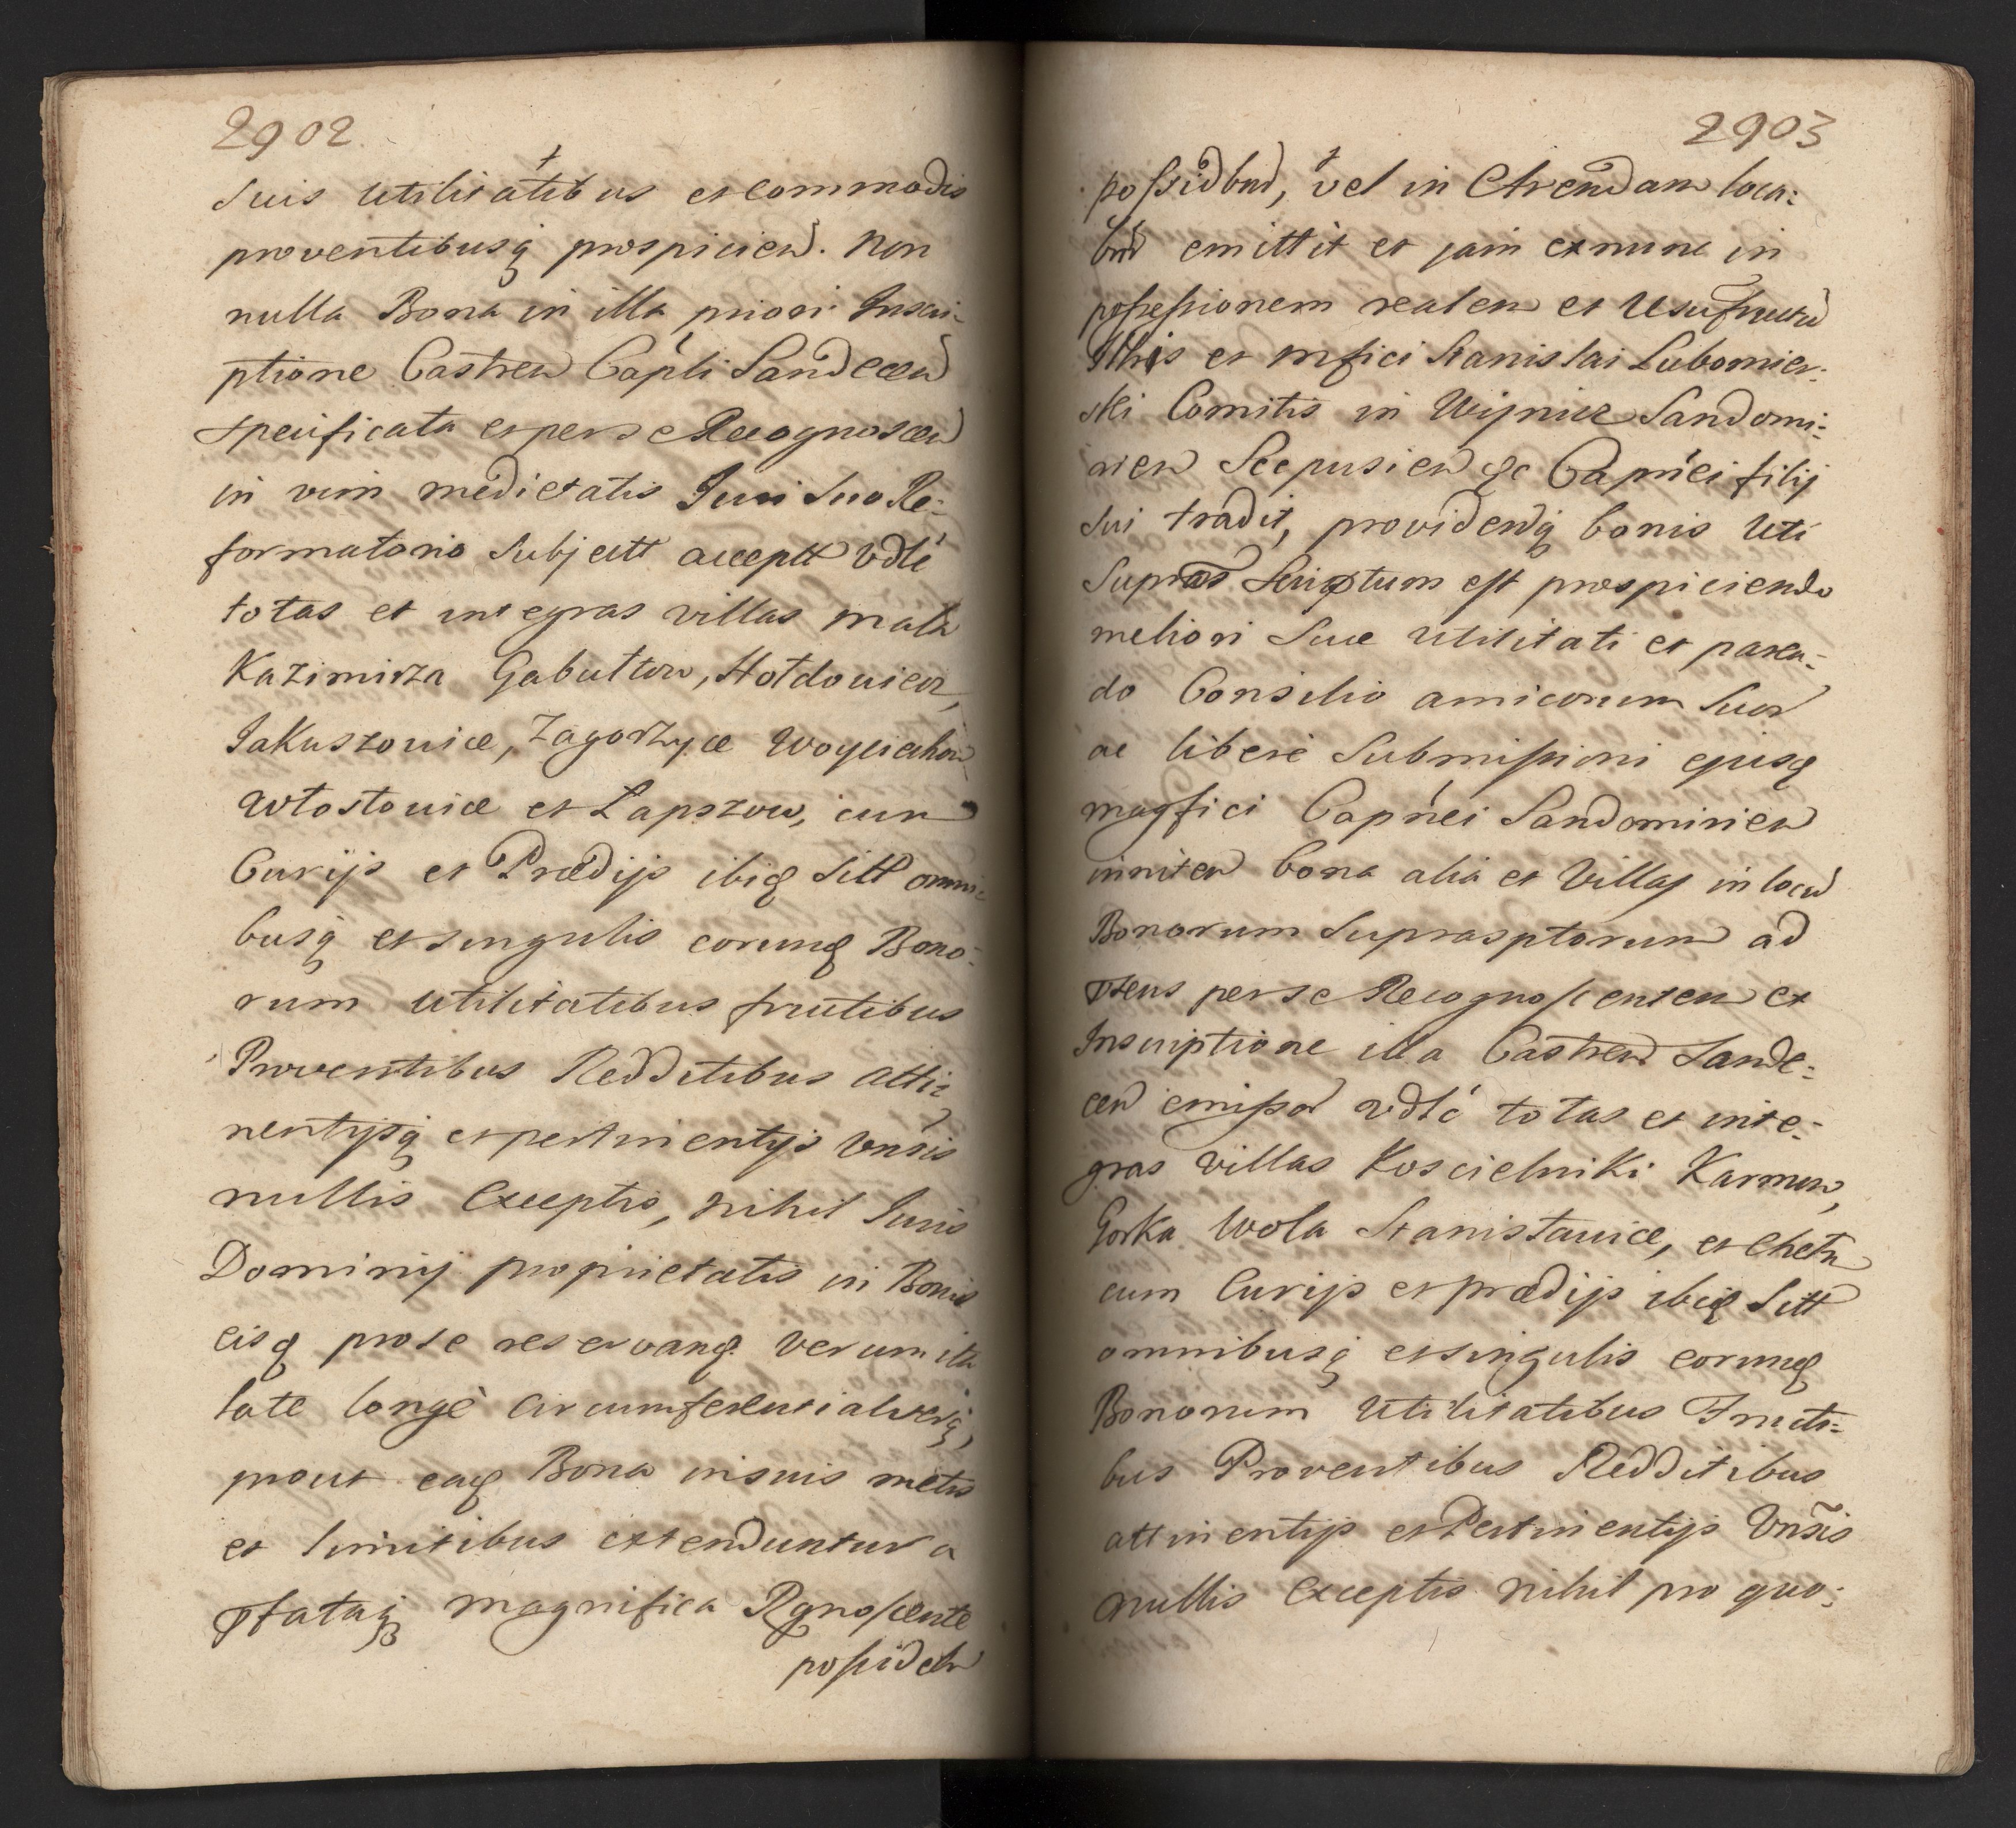 2902
suis utilitatibus et commodis
proventibusq prospicien. Non
nulla Bona in illa priori Inscri-
ptione Castren Capli Sandecen
specificata et per se Recognoscen
in vim medietatis Juri suo Re-
formatorio Subjectt acceptt vdlt
totas et integras villas mala
Kazimirza Gabultow, Hołdowiec,
Jakuszowice, Zagorzyce Woyciechow
Włostowice et Łapszow, cum
Curijs et Prædijs ibiq sitt omni-
busq et singulis eorumq Bono-
rum utilitatibus fructibus
Proventibus Redditibus atti-
nentijsq et pertinentijs vnsis
nullis Exceptis, nihil Juris
Dominij proprietatis in Bonis
eisq pro se reservanq verum ita
late longè circumferentialiterq,
prout eaq Bona in suis metis
et limitibus extenduntur a
pfataq magnifica Rgnoscente
possideban
2903
possidbnd, vel in Arendam loca-
bnd emittit et jam exnunc in
possessionem realem et Usufructu
Illris et mfici Stanislai Lubomier-
ski Comitis in Wisnicz Sandomi-
rien Scepusien &c Capnei filij
sui tradit, providendq bonis uti
Supra Scriptum est prospiciendo
meliori Suæ utilitati et paren-
do Consilio amicorum Suor
ac liberè Submissioni ejusq
magfici Capnei Sandomirien
inniten bona alia et Villas in locu
Bonorum suprasptorum ad
pfens per se Recognoscentem ex
Inscriptione illa Castren Sande-
cen emissa vdlt totas et inte-
gras villas Koscielniki Karmin,
Gorka Wola Stanisławice, et Chełm
cum Curijs et prædijs ibiq Sitt
omnibusq et singulis eorumq
Bonorum Utilitatibus Fructi-
bus Proventibus Redditibus
attinentijs et Pertinentijs Vnsis
nullis Exceptis nihil pro quo-